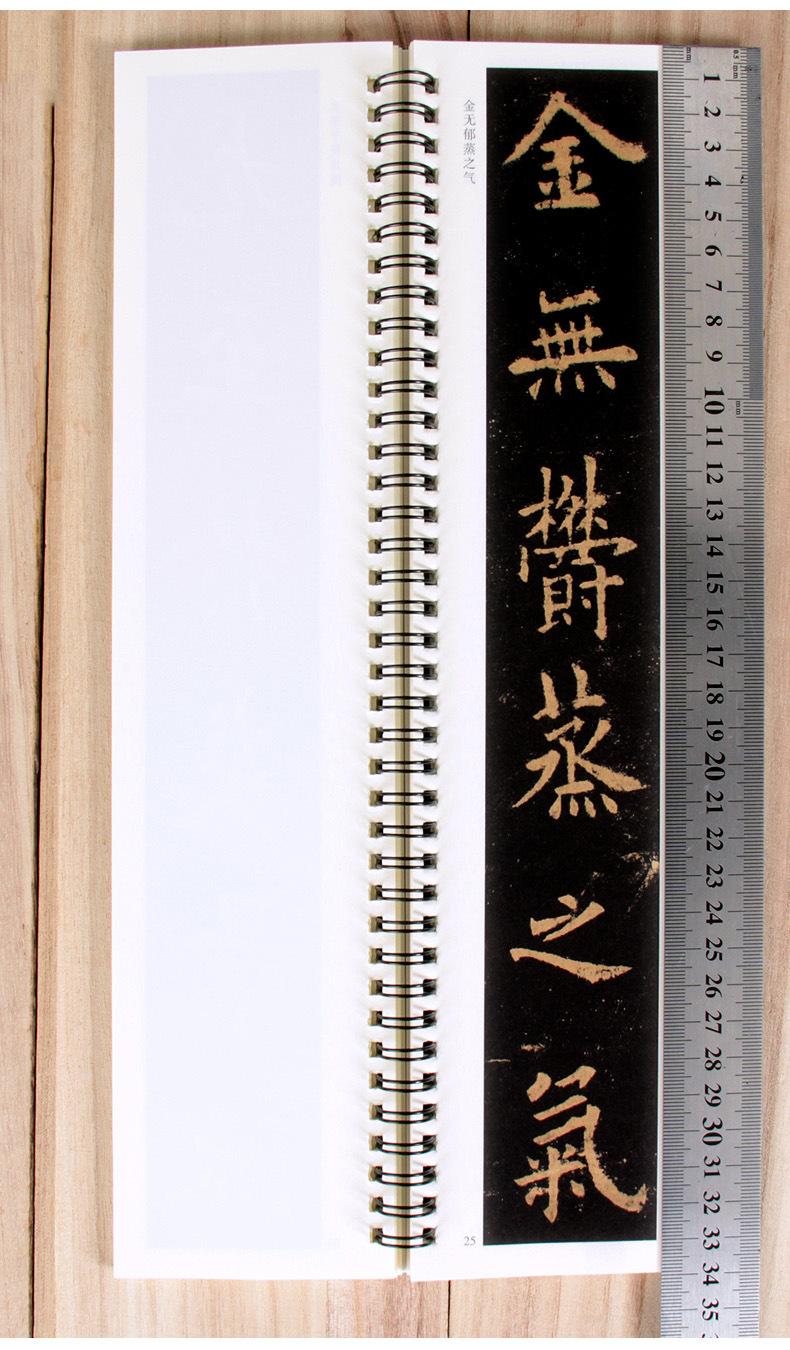 金無鬱蒸之氣
金无郁蒸之气
25
0.5
mm
mm
mm
1
2
3
4
5
6
7
8
9
10
11
12
13
14
15
16
17
18
19
20
21
22
23
24
25
26
27
28
29
30
31
32
33
34
35